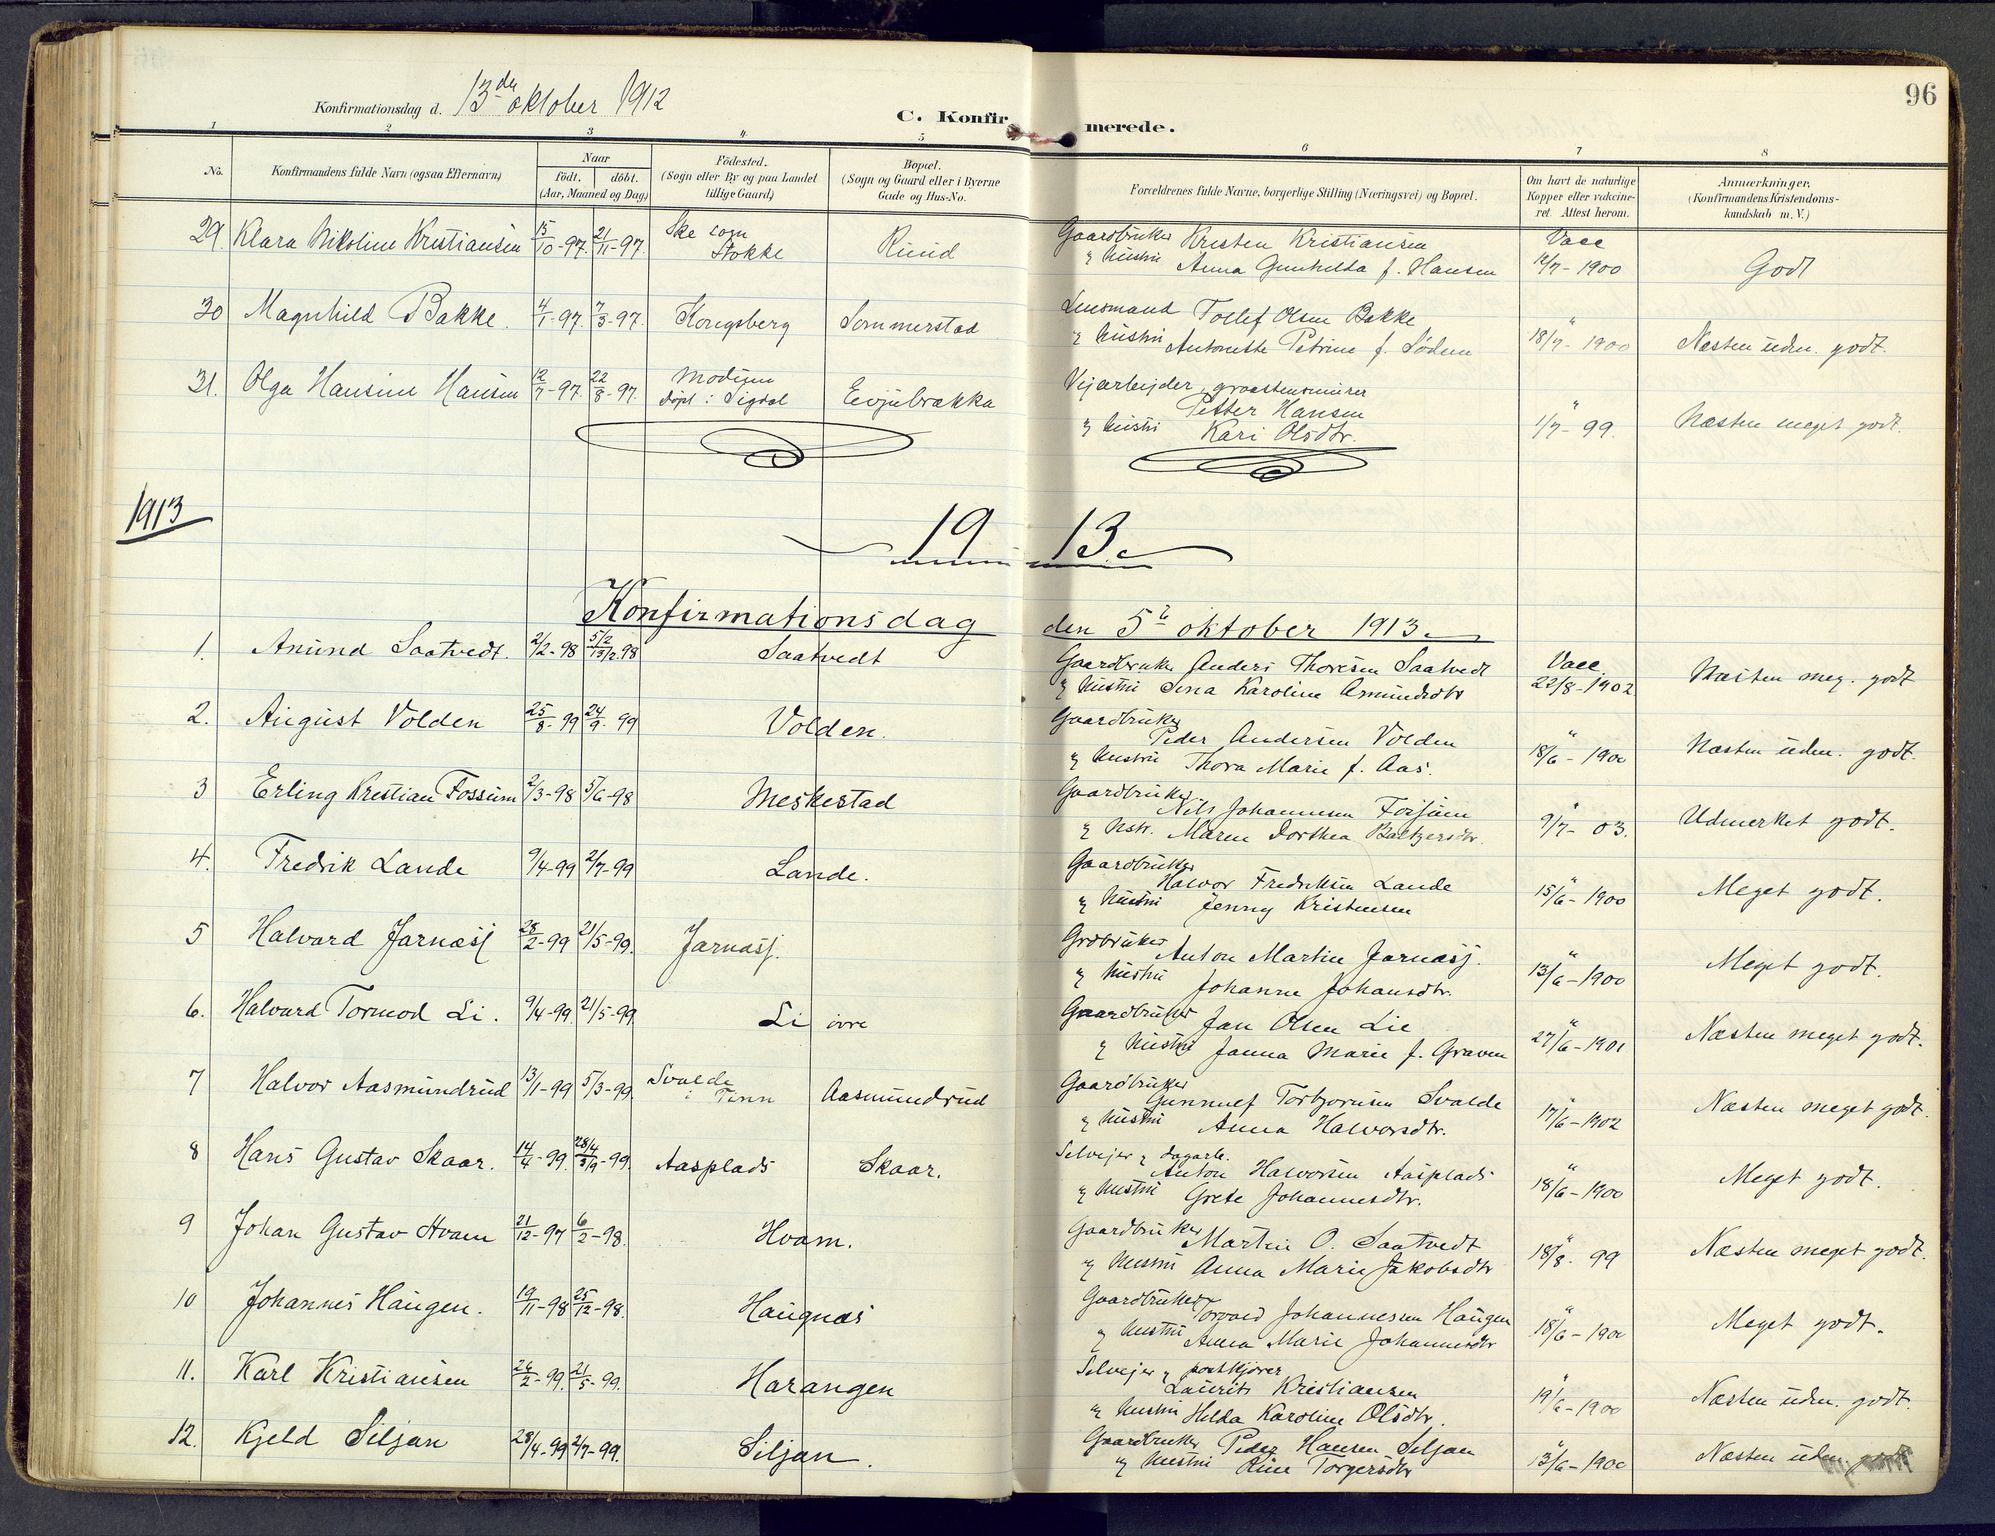 96
Konfirmationsdag d. 13de oktober 1912
C. Konfirmerede.
1 2 3 4 5 6 7 8
No.
Konfirmandens fulde Navn (ogsaa Efternavn)
Naar
födt. döbt.
(Aar, Maaned og Dag)
Födested.
(Sogn eller By og paa Landet
tillige Gaard)
Bopæl.
(Sogn og Gaard eller i Byerne
Gade og Hus-No.
Forældrenes fulde Navne, borgerlige Stilling (Næringsvei) og Bopæl.
Om havt de naturlige
Kopper eller vakcine-
ret. Attest herom.
Anmærkninger,
(Konfirmandens Kristendoms-
kundskab m. V.)
29. Klara Nikoline Kristiansen 15/10-97. 21/11-97. Ske sogn Stokke Ruud Gaardbruker Kristen Kristiansen Vacc
" hustru Anna Gunhilda f. Hansen 12/7-1900 Godt
30 Magnhild Bakke. 4/1-97. 7/3-97. Kongsberg Sommerstad Lensmand Tollef Olsen Bakke
" hustru Antonette Petrine f. Sødem 18/7-1900 Næsten uden. godt.
31. Olga Hansine Hansen 12/7-97. 22/8-97. Modum døpt i Sigdal Evjubrækka Vejarbejder, graastensmurer
Petter Hansen
" hustru Kari Olsdtr. 1/7-99. Næsten meget godt.
1913
1913.
Konfirmationsdag den 5te oktober 1913.
1. Amund Saatvedt. 2/2-98 5/2 13/2.98 Saatvedt Gaardbruker Anders Thoresen Saatvedt Vacc.
" hustru Sina Karoline Amundsdtr 22/8-1902 Næsten meg. godt
2. August Volden 25/8-99 24/9-99 Volden. Gaardbruker
Peder Andersen Volden
" hustru Thora Marie f. Aas. 18/6-1900 Næsten uden. godt.
3 Erling Kristian Fossum 2/3-98 5/6-98 Meskestad Gaardbruker
Nils Johannesen Forsjum
" hstr. Maren Dorthea Baltzersdtr. 9/7-03. Udmerket godt.
4. Fredrik Lande 9/4-99 2/7-99 Lande. Gaardbruker
Halvor Fredriksen Lande
" hustru Jenny Kristensen 15/6-1900 Meget godt.
5 Halvard Jarnæsj 28/2-99 21/5-99. Jarnæsj. Grdbruker
Anton Martin Jarnæsj.
" hustru Johanne Johansdtr. 13/6-1900 Meget godt.
6. Halvard Tormod Li. 9/4-99. 21/5-99. Li øvre Gaardbruker
Jan Olsen Lie
" hustru Janna Marie f. Graven 27/6-1901 Næsten meget godt.
7 Halvor Aasmundrud 13/1-99 5/3-99. Svalde i Tinn Aasmundrud Gaardbruker
Gunnulf Torbjørnsen Svalde
" hustru Anna Halvorsdtr. 17/6-1902 Næsten meget godt.
8 Hans Gustav Skaar. 14/4-99. 28/4 3/9-99. Aasplads Skaar. Selvejer " dagarb.
Anton Halvorsen Aasplads
" hustru Grete Johannesdtr. 18/6-1900 Meget godt.
9 Johan Gustav Hvam 21/12-97 6/2-98. Hvam. Gaardbruker
Martin O. Saatvedt
" hustru Anna Marie Jakobsdtr 18/8.99 Næsten meget godt.
10 Johannes Haugen. 19/11-98 25/12-98. Haugnæs Gaardbruker
Torvald Johannesen Haugen
" hustru Anna Marie Johannesdtr 18/6-1900 Meget godt.
11. Karl Kristiansen 26/2-99. 21/5-99. Harangen Selvejer " postkjører
Laurits Kristiansen
" hustru Hilda Karoline Olsdtr. 19/6-1900 Næsten uden. godt.
12. Kjeld Siljan 28/4-99 2/7-99. Siljan. Gaardbruker Peder Hansen Siljan
" hustru Rine Torgersdtr 13/6-1900 Næsten uden. godt